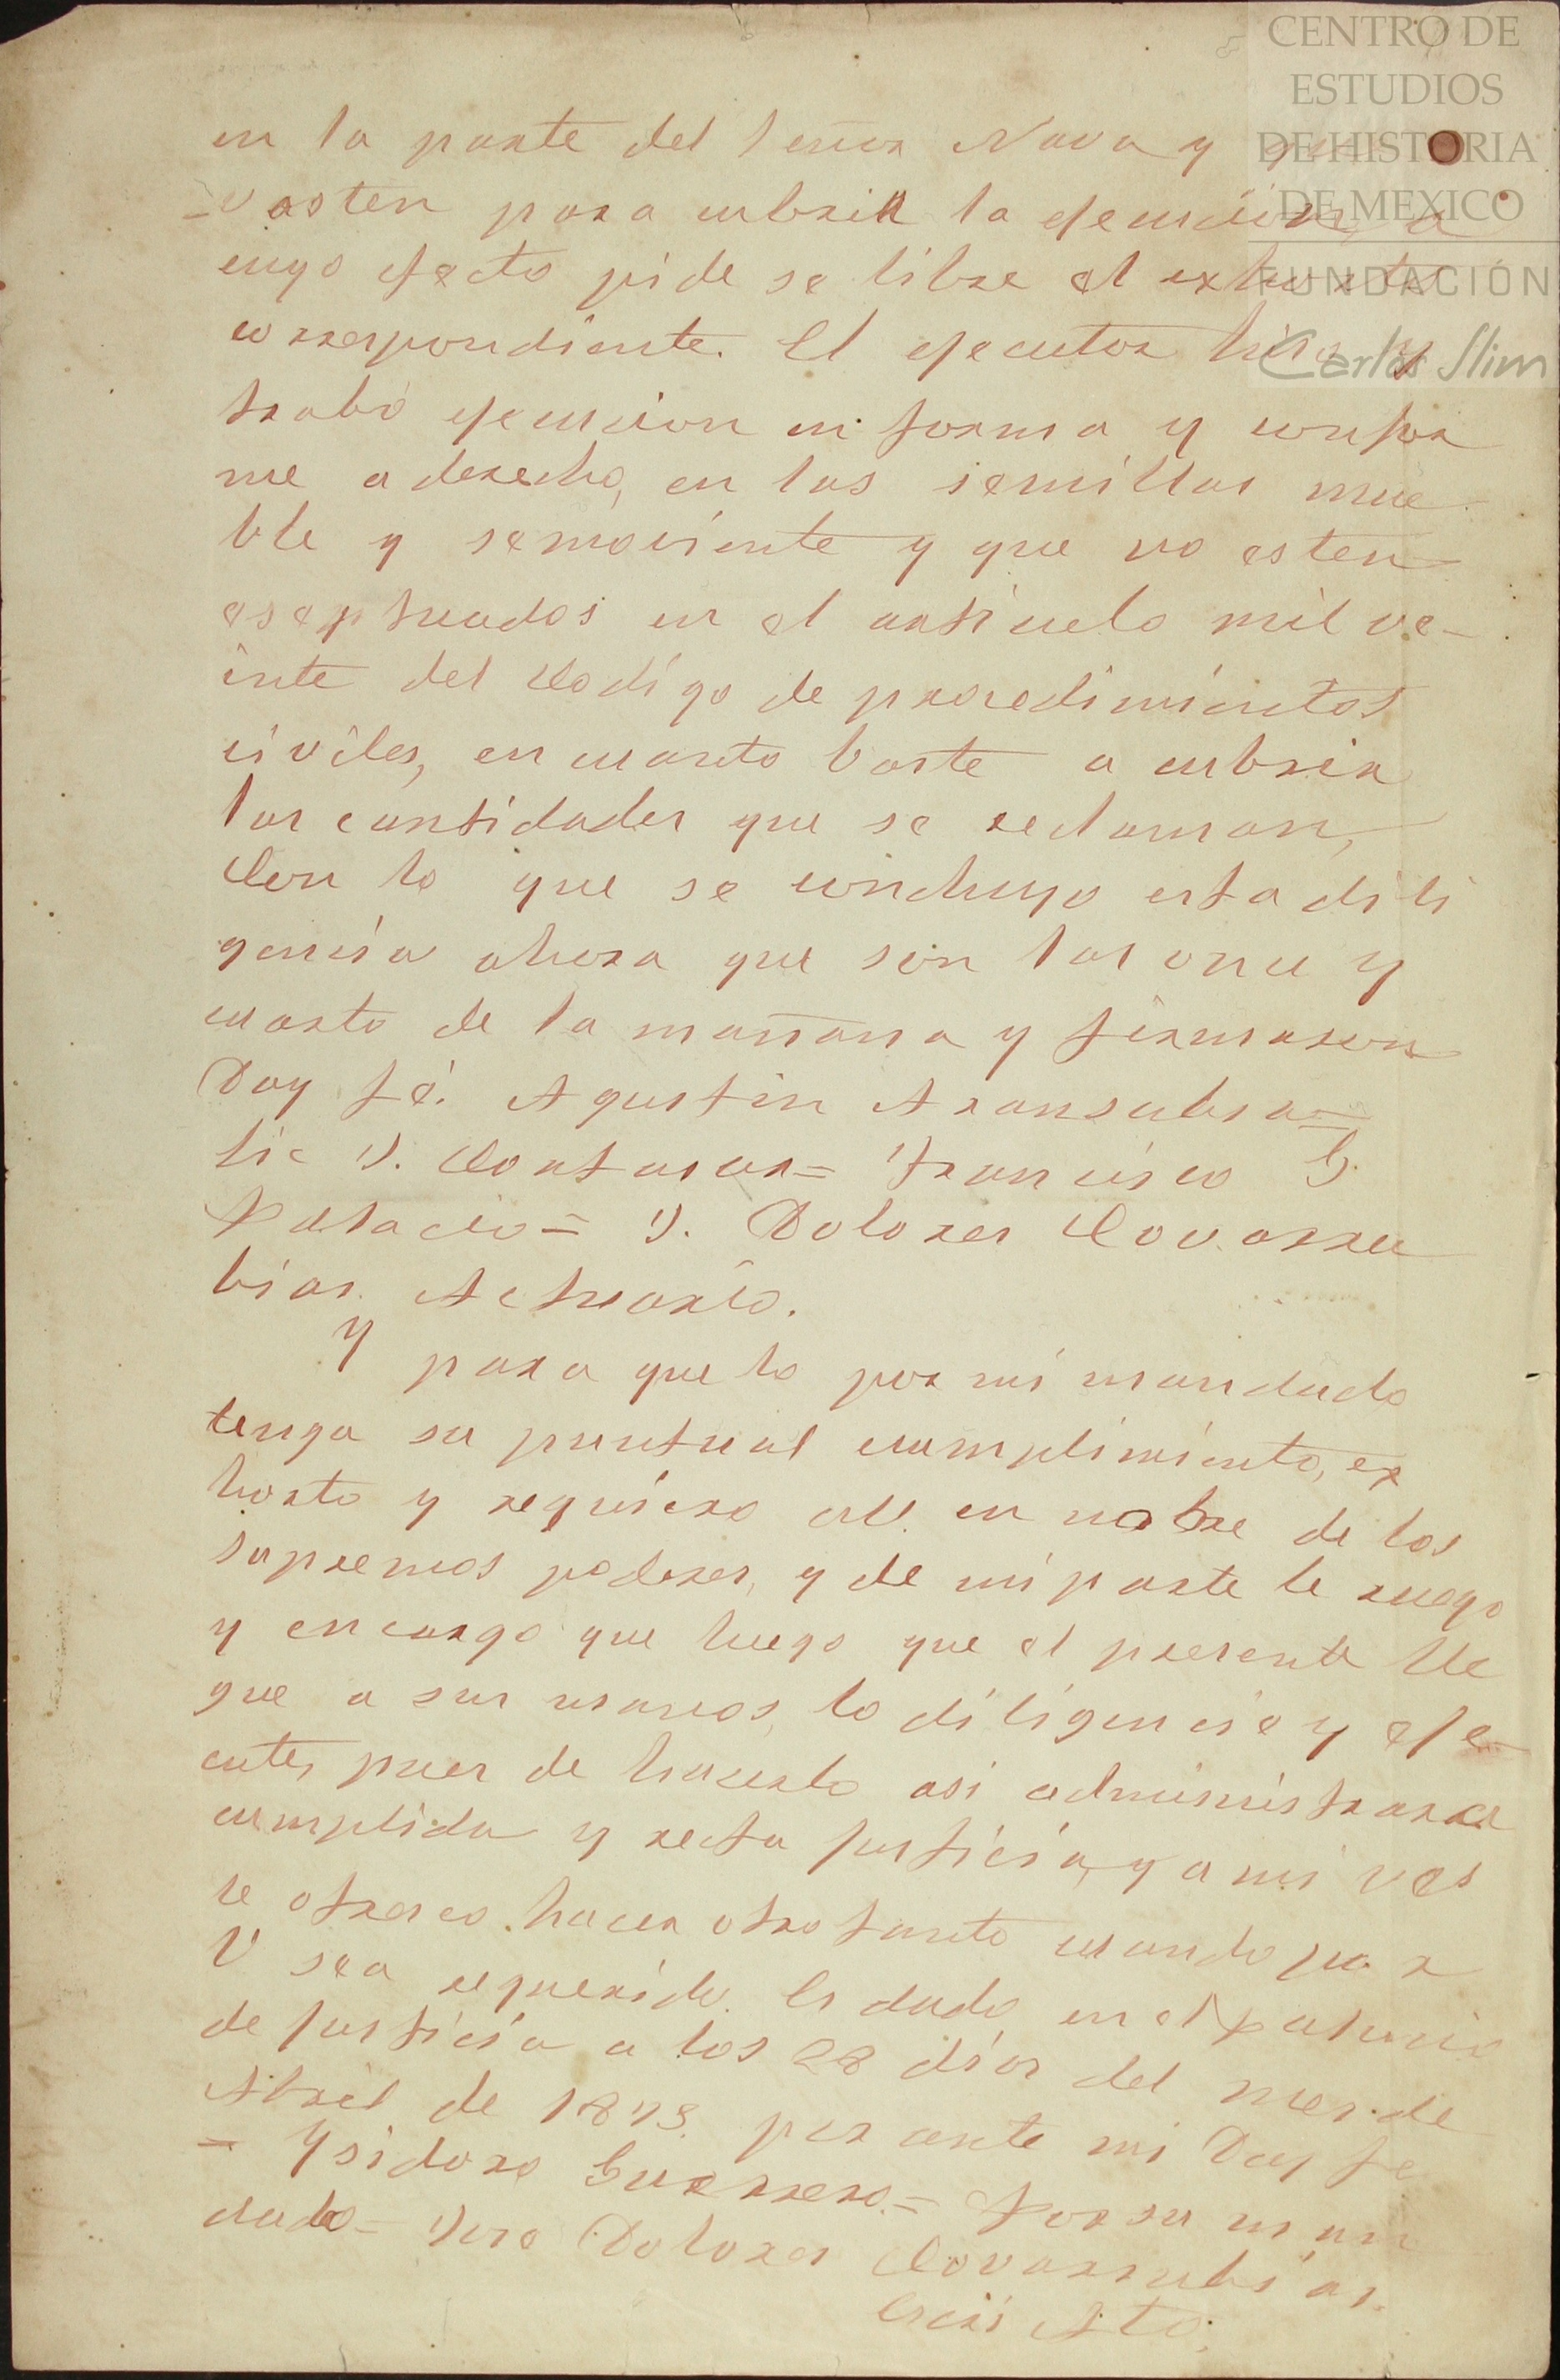 CENTRO DE
ESTUDIOS
DE HISTORIA
DE MEXICO
FUNDACIÓN
Carlos Slim
en la parte del Señor Nava y que
vasten para cubrir la ejecucion, a
cuyo efecto pide se libre el exhorto
correspondiente. El ejecutor hiso y
trabó ejecucion en forma y confor
me a derecho, en las semillas mue
ble y semoviente y que no esten
eseptuados en el articulo mil ve-
inte del Codigo de procedimientos
civiles, en cuanto baste a cubrir
las cantidades que se reclaman,
Con lo que se concluyo esta dili
gencia ahora que son las once y
cuarto de la mañana y firmaron
Doy fé. Agustin Aransubia=
Lic J. Cortasar= Francisco G.
Palacio= J. Dolores Covarru
bias. Actuario.
Y para que lo por mi mandado
tenga su puntual cumplimiento, ex
horto y requiero a U. en nobre de los
supremos poderes, y de mi parte le ruego
y encargo que luego que el presente lle
gue a sus manos, lo diligencie y eje
cute, pues de hacerlo asi administrara
cumplida y recta justicia, y a mi ves
le ofresco hacer otro tanto cuando por
U sea requerido. Es dado en el palacio
de justicia a los 28 dias del mes de
Abril de 1873. por ante mi Doy fe
= Ysidoro Guerrero.= Por su man
dado= José Dolores Covarrubias.
Escri Ato.